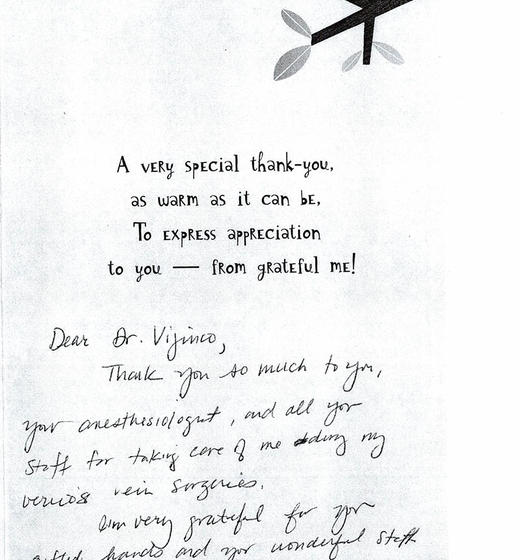 A very special thank-you,
as warm as it can be,
To express appreciation
to you — from grateful me!
Dear Dr. Vijinco,
Thank you so much to you,
your anesthesiologist, and all your
staff for taking care of me during my
vericos vein surgeries.
I'm very grateful for your
gifted hands and your wonderful staff